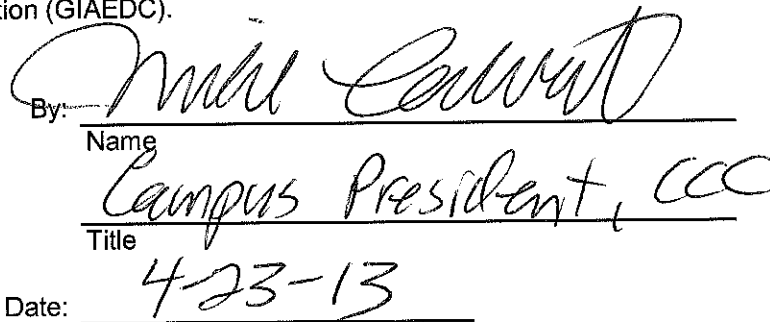 tion (GIAEDC).
By:
Name
Campus President, CCC
Title
Date: 4-23-13